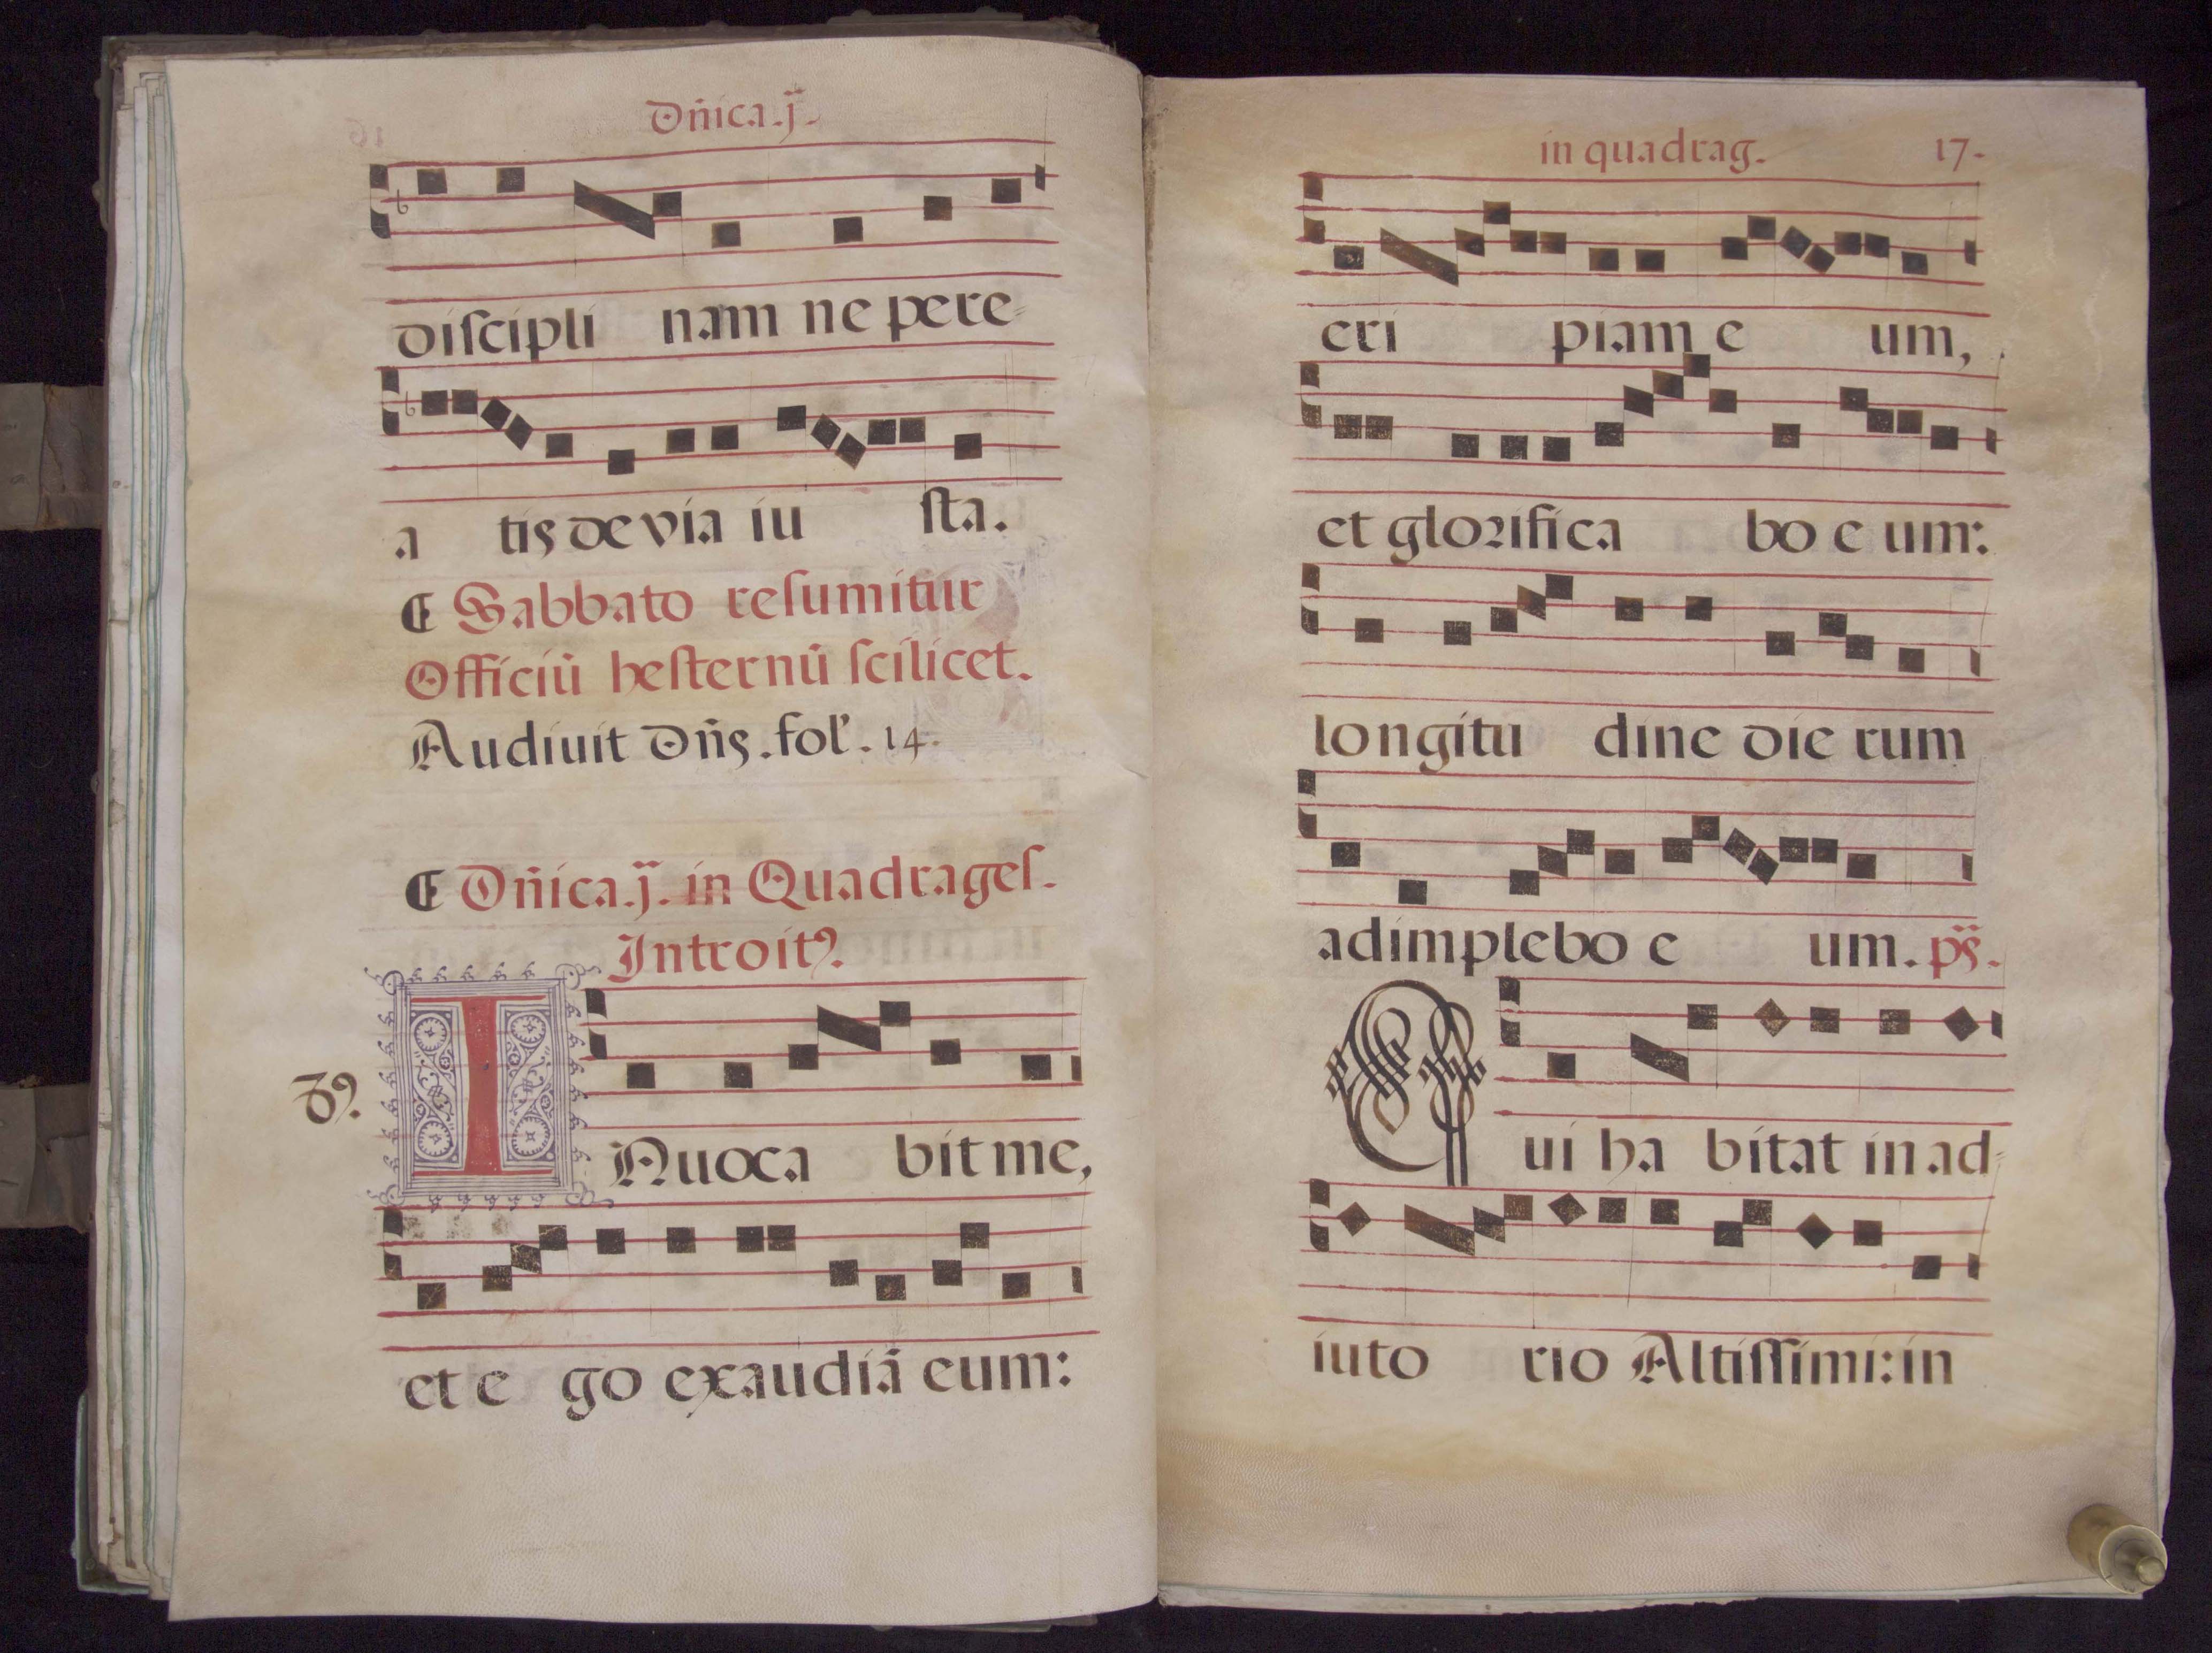 Dñica.j.
diſcipli nam ne pere-
a tis de via iu ſta.
Sabbato reſumitur
Officiũ heſternũ ſcilicet.
Audiuit Dñs. fol. 14.
Dñica.j. in Quadrageſ.
Introit9.
INuoca bit me,
et e go exaudiã eum:
in quadrag. 17.
eri piam e um,
et glorifica bo e um:
longitu dine die rum
adimplebo e um. ps.
Qui ha bitat in ad-
iuto rio Altiſſimi: in